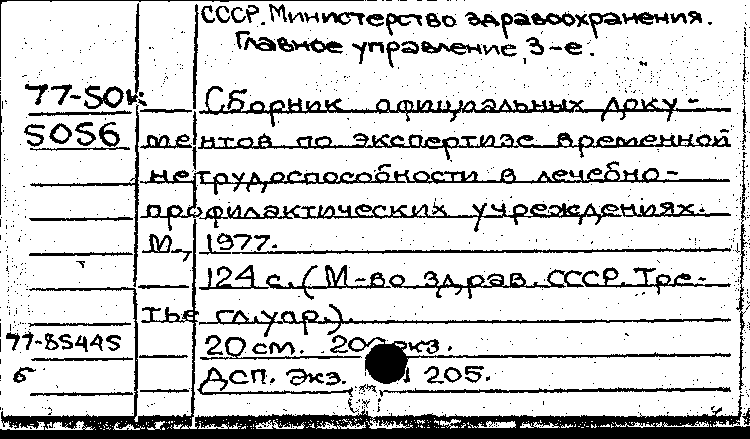 СССР. Министерство здравоохранения.
Главное управление, 3-е.
77-50к Сборник официальных доку-
5056 ментов по экспертизе временной
нетрудоспособности в лечебно-
профилактических учреждениях.
М., 1977.
124 с. (М-во здрав. СССР. Тре-
тье гл. упр.).
77-85445 20 см. экз.
б ДСП. Экз. 205.